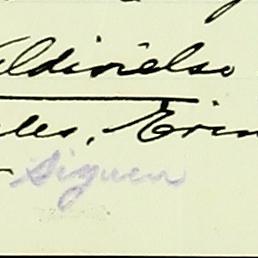 aldivielso
les, Erin
Siguen